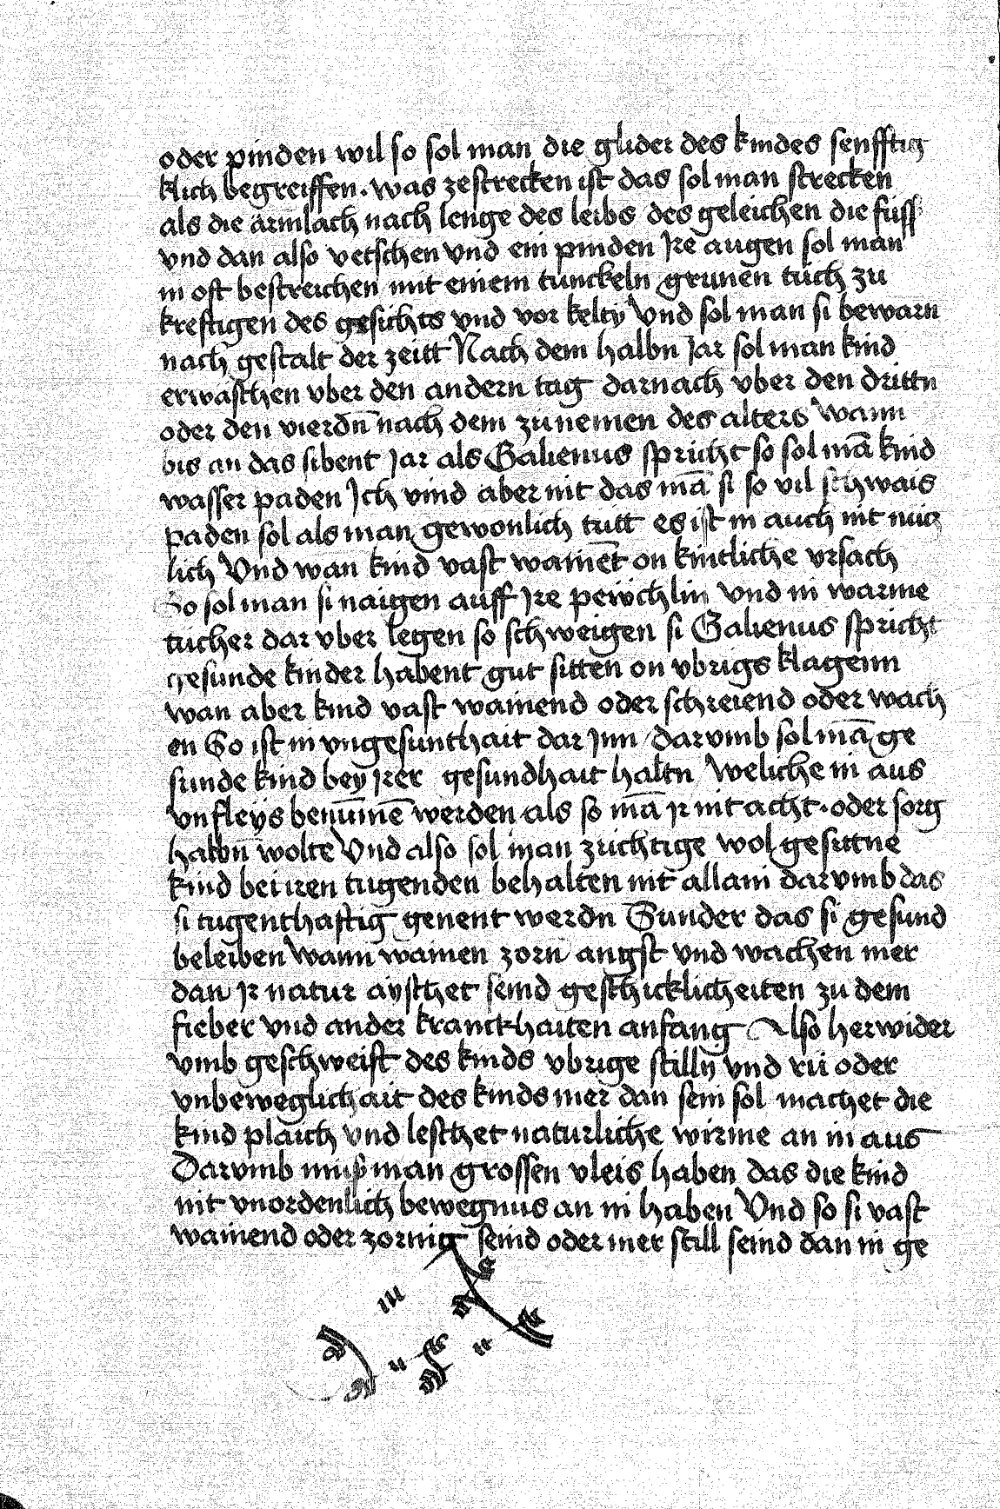 oder pinden wil so sol man die glider des kindes senfftig
klich begreiffen. was zestrecken ist das sol man strecken
als die ärmlach nach lenge des leibs des geleichen die füss
vnd dan also vetschen vnd ein pinden Jre augen sol man
in oft bestreichen mit einem tunckeln grunen tuch zu
kreftigen des gesichts vnd vor kelty Vnd sol man si bewarn
nach gestalt der zeitt Nach dem halbn Jar sol man kind
erwaschen vber den andern tag darnach vber den drittn
oder den vierdn̄ nach dem zunemen des alters Wann
bis an das sibent Jar als Galienus spricht so sol mā kind
wasser paden Ich vind aber nit das mā si so vil schwais
paden sol als man gewonlich tutt es ist in auch nit nücz
lich Vnd wan kind vast wainēt on kintliche vrsach
So sol man si naigen auff Jre pewchlin vnd in warme
tucher dar vber legen so schweigen si Galienus spricht
gesunde kinder habent gut sitten on vbrigs klagenn
wan aber kind vast wainend oder schreiend oder wach
en So ist in vngesunthait dar Jnn darvmb sol mā ge
sunde kind bey Jrer gesundhait haltn Weliche in aus
vnfleys benūmē werden als so mā Jr nit acht. oder sorg
halbn wolte Vnd also sol man züchtige wol gesittne
kind bei iren tugenden behalten nit allain darvmb das
si tugenthaftig genent werdn Sunder das si gesund
beleiben Wann wainen zorn angst vnd wachen mer
dan Jr natur ayschet seind geschicklicheiten zu dem
fieber vnd ander kranckhaiten anfang Also herwider
vmb geschweist des kinds vbrige stilly vnd rü oder
vnbeweglichait des kinds mer dan sein sol machet die
kind plaich vnd leschet naturliche wirme an in aus
Darvmb muß man grossen vleis haben das die kind
nit vnordenlich bewegnus an in haben Vnd so si vast
wainend oder zornig seind oder mer still seind dan in ge